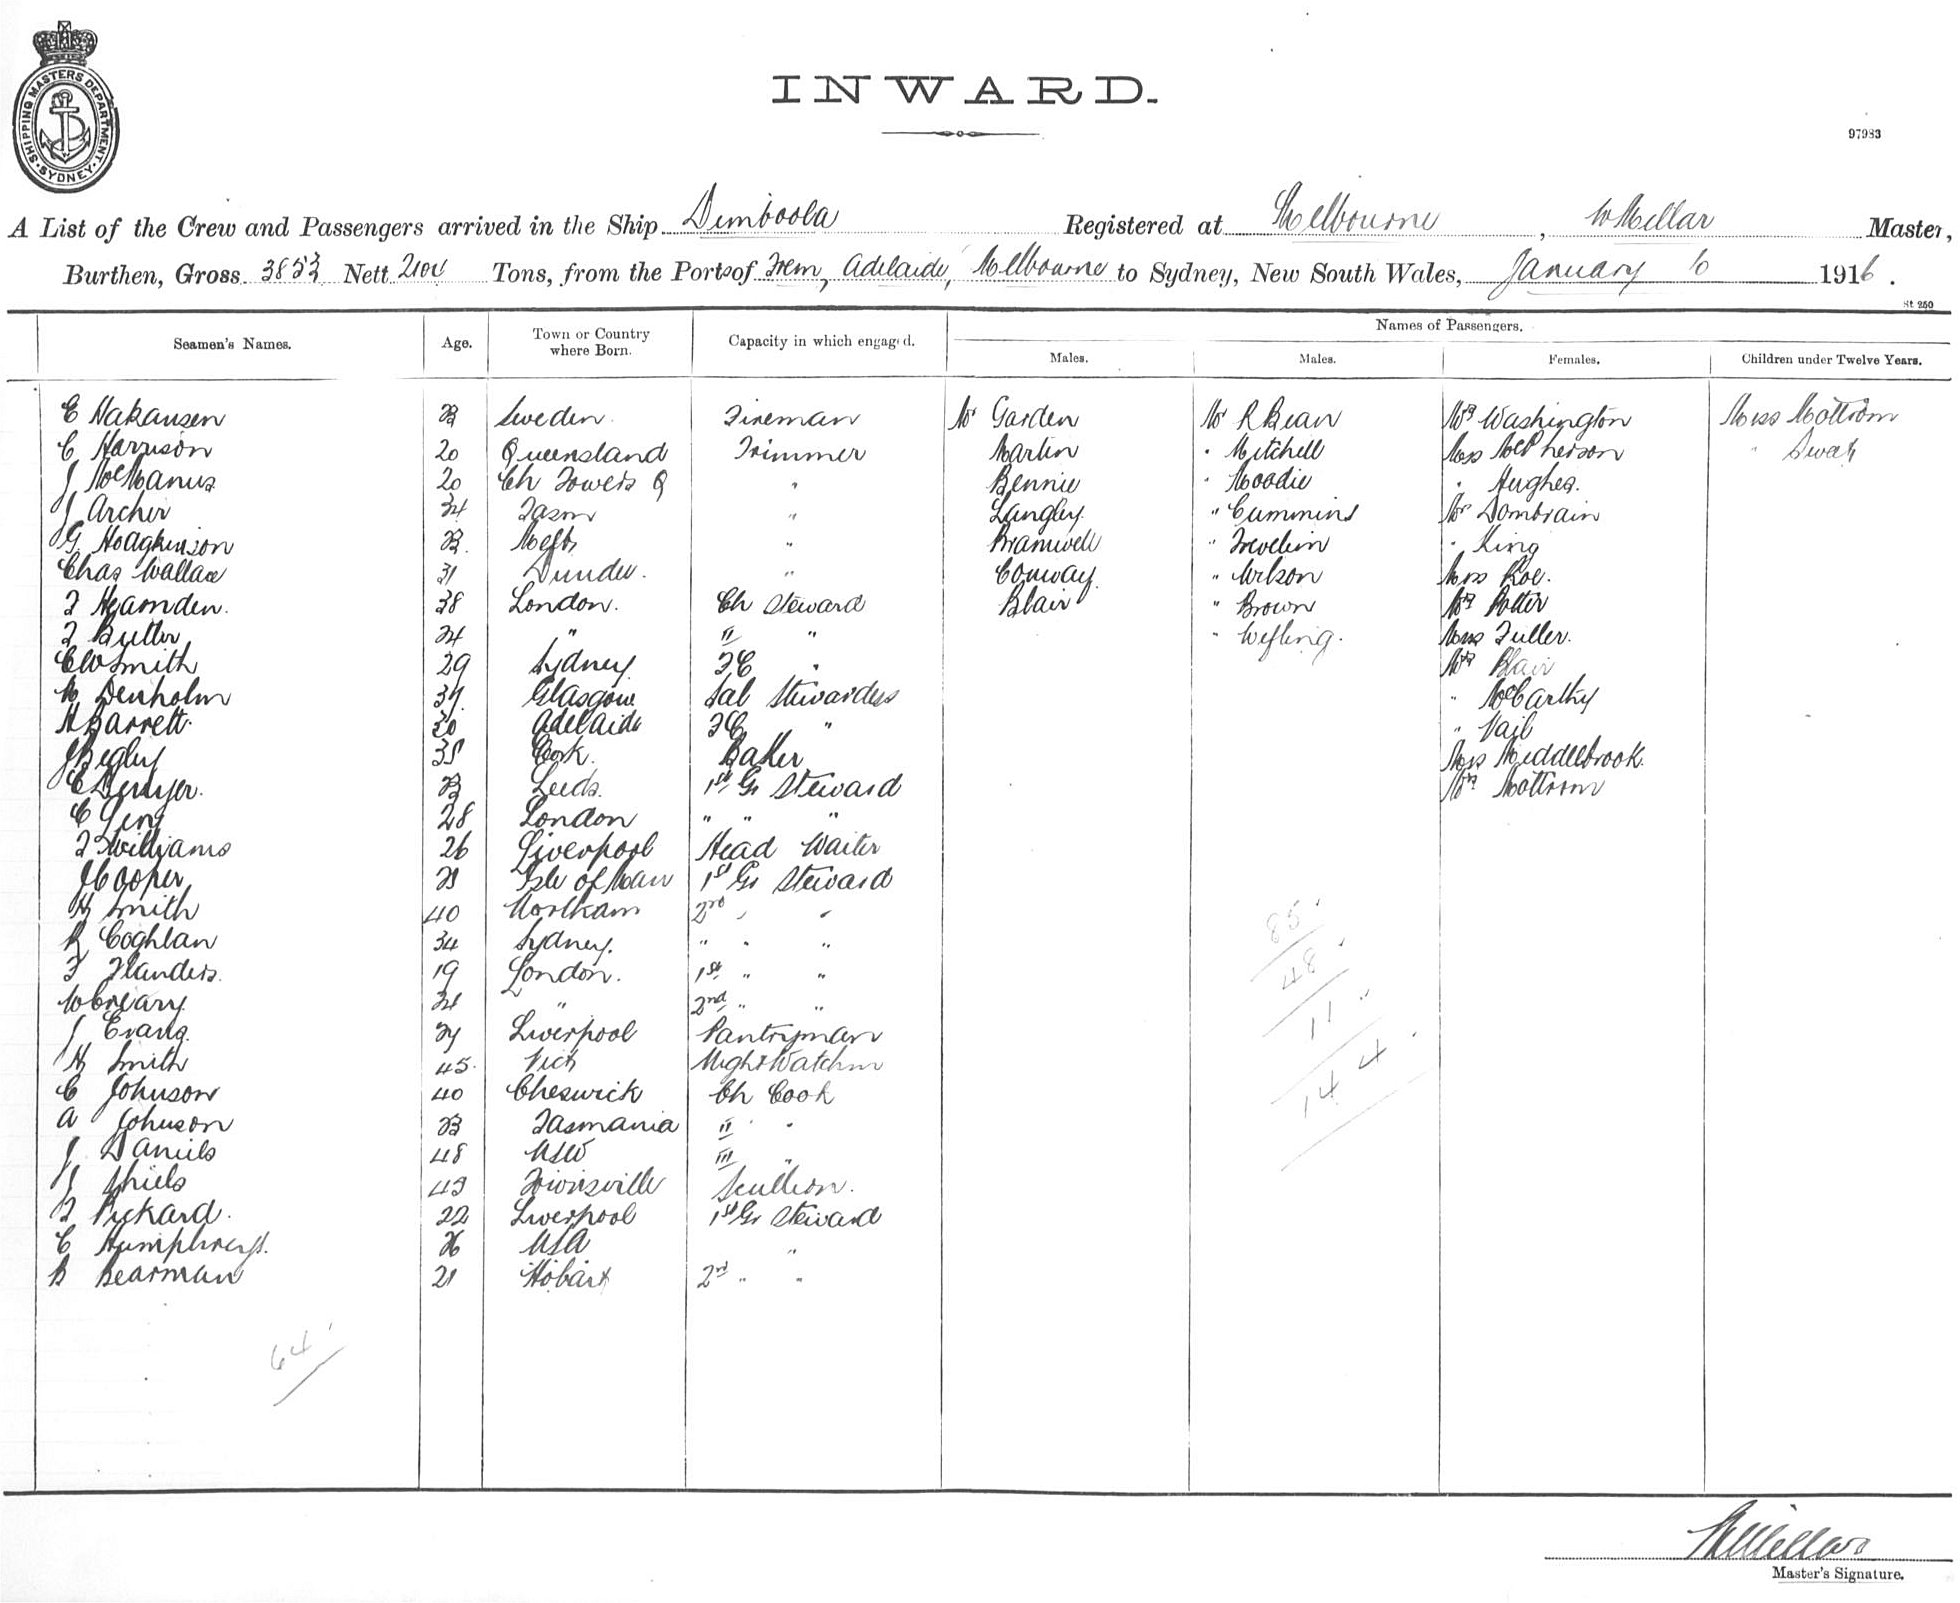 SHIPPING MASTERS DEPARTMENT. SYDNEY.
INWARD.
97983
A List of the Crew and Passengers arrived in the Ship Dimboola Registered at Melbourne, W Millar Master,
Burthen, Gross 3853 Nett 2100 Tons, from the Ports of Frem, Adelaide, Melbourne to Sydney, New South Wales, January 6 1916.
St 250
Seamen's Names. Age. Town or Country where Born. Capacity in which engaged. Names of Passengers.
Males. Males. Females. Children under Twelve Years.
E Hakansen Sweden. Fireman Mr Garden Mr R Bean Mrs Washington Miss Mottrom
C Harrison 20 Queensland Trimmer Martin " Mitchell Miss McPherson "
J McManus 20 Ch Towers Q " Bennie " Moodie " Hughes.
J Archer 34 Tasm " Langley " Cummins Mrs Dombrain
G Hodgkinson Melb " Bramwell " " King
Chas Wallace 31 Dundee. " Conway. " Wilson Miss Roe.
F Hamden. 38 London. Ch Steward Blair " Brown Mrs Potter
F Butler 24 " II " " Miss Fuller.
C W Smith 29 Sydney. FC " Mrs Blair
M Denholm 37 Glasgow Sal Stewardess " McCarthy
H Barrett. 30 Adelaide FC " " Vail
J Begley 38 Cork. Baker Miss Middlebrook.
C Leeds. 1st Gr Steward Mrs Mottrom
C 28 London " " "
F Williams 26 Liverpool Head Waiter
J Cooper Isle of Man 1st Gr Steward
H Smith 40 Northam 2nd " "
R Coghlan 34 Sydney. " " "
F Flanders. 19 London. 1st " "
W Creary. " 2nd " "
J Evans. Liverpool Pantryman
H Smith 45 Vict NightWatchm
C Johnson 40 Cheswick Ch Cook
A Johnson Tasmania II "
J Daniels 48 NSW III "
J Shiels 43 Townsville Scullion.
F Pickard. 22 Liverpool 1st Gr Steward
C Humphreys. 26 USA "
B Bearman 21 Hobart 2nd " "
85
48
11
144
64
W Millar
Master's Signature.